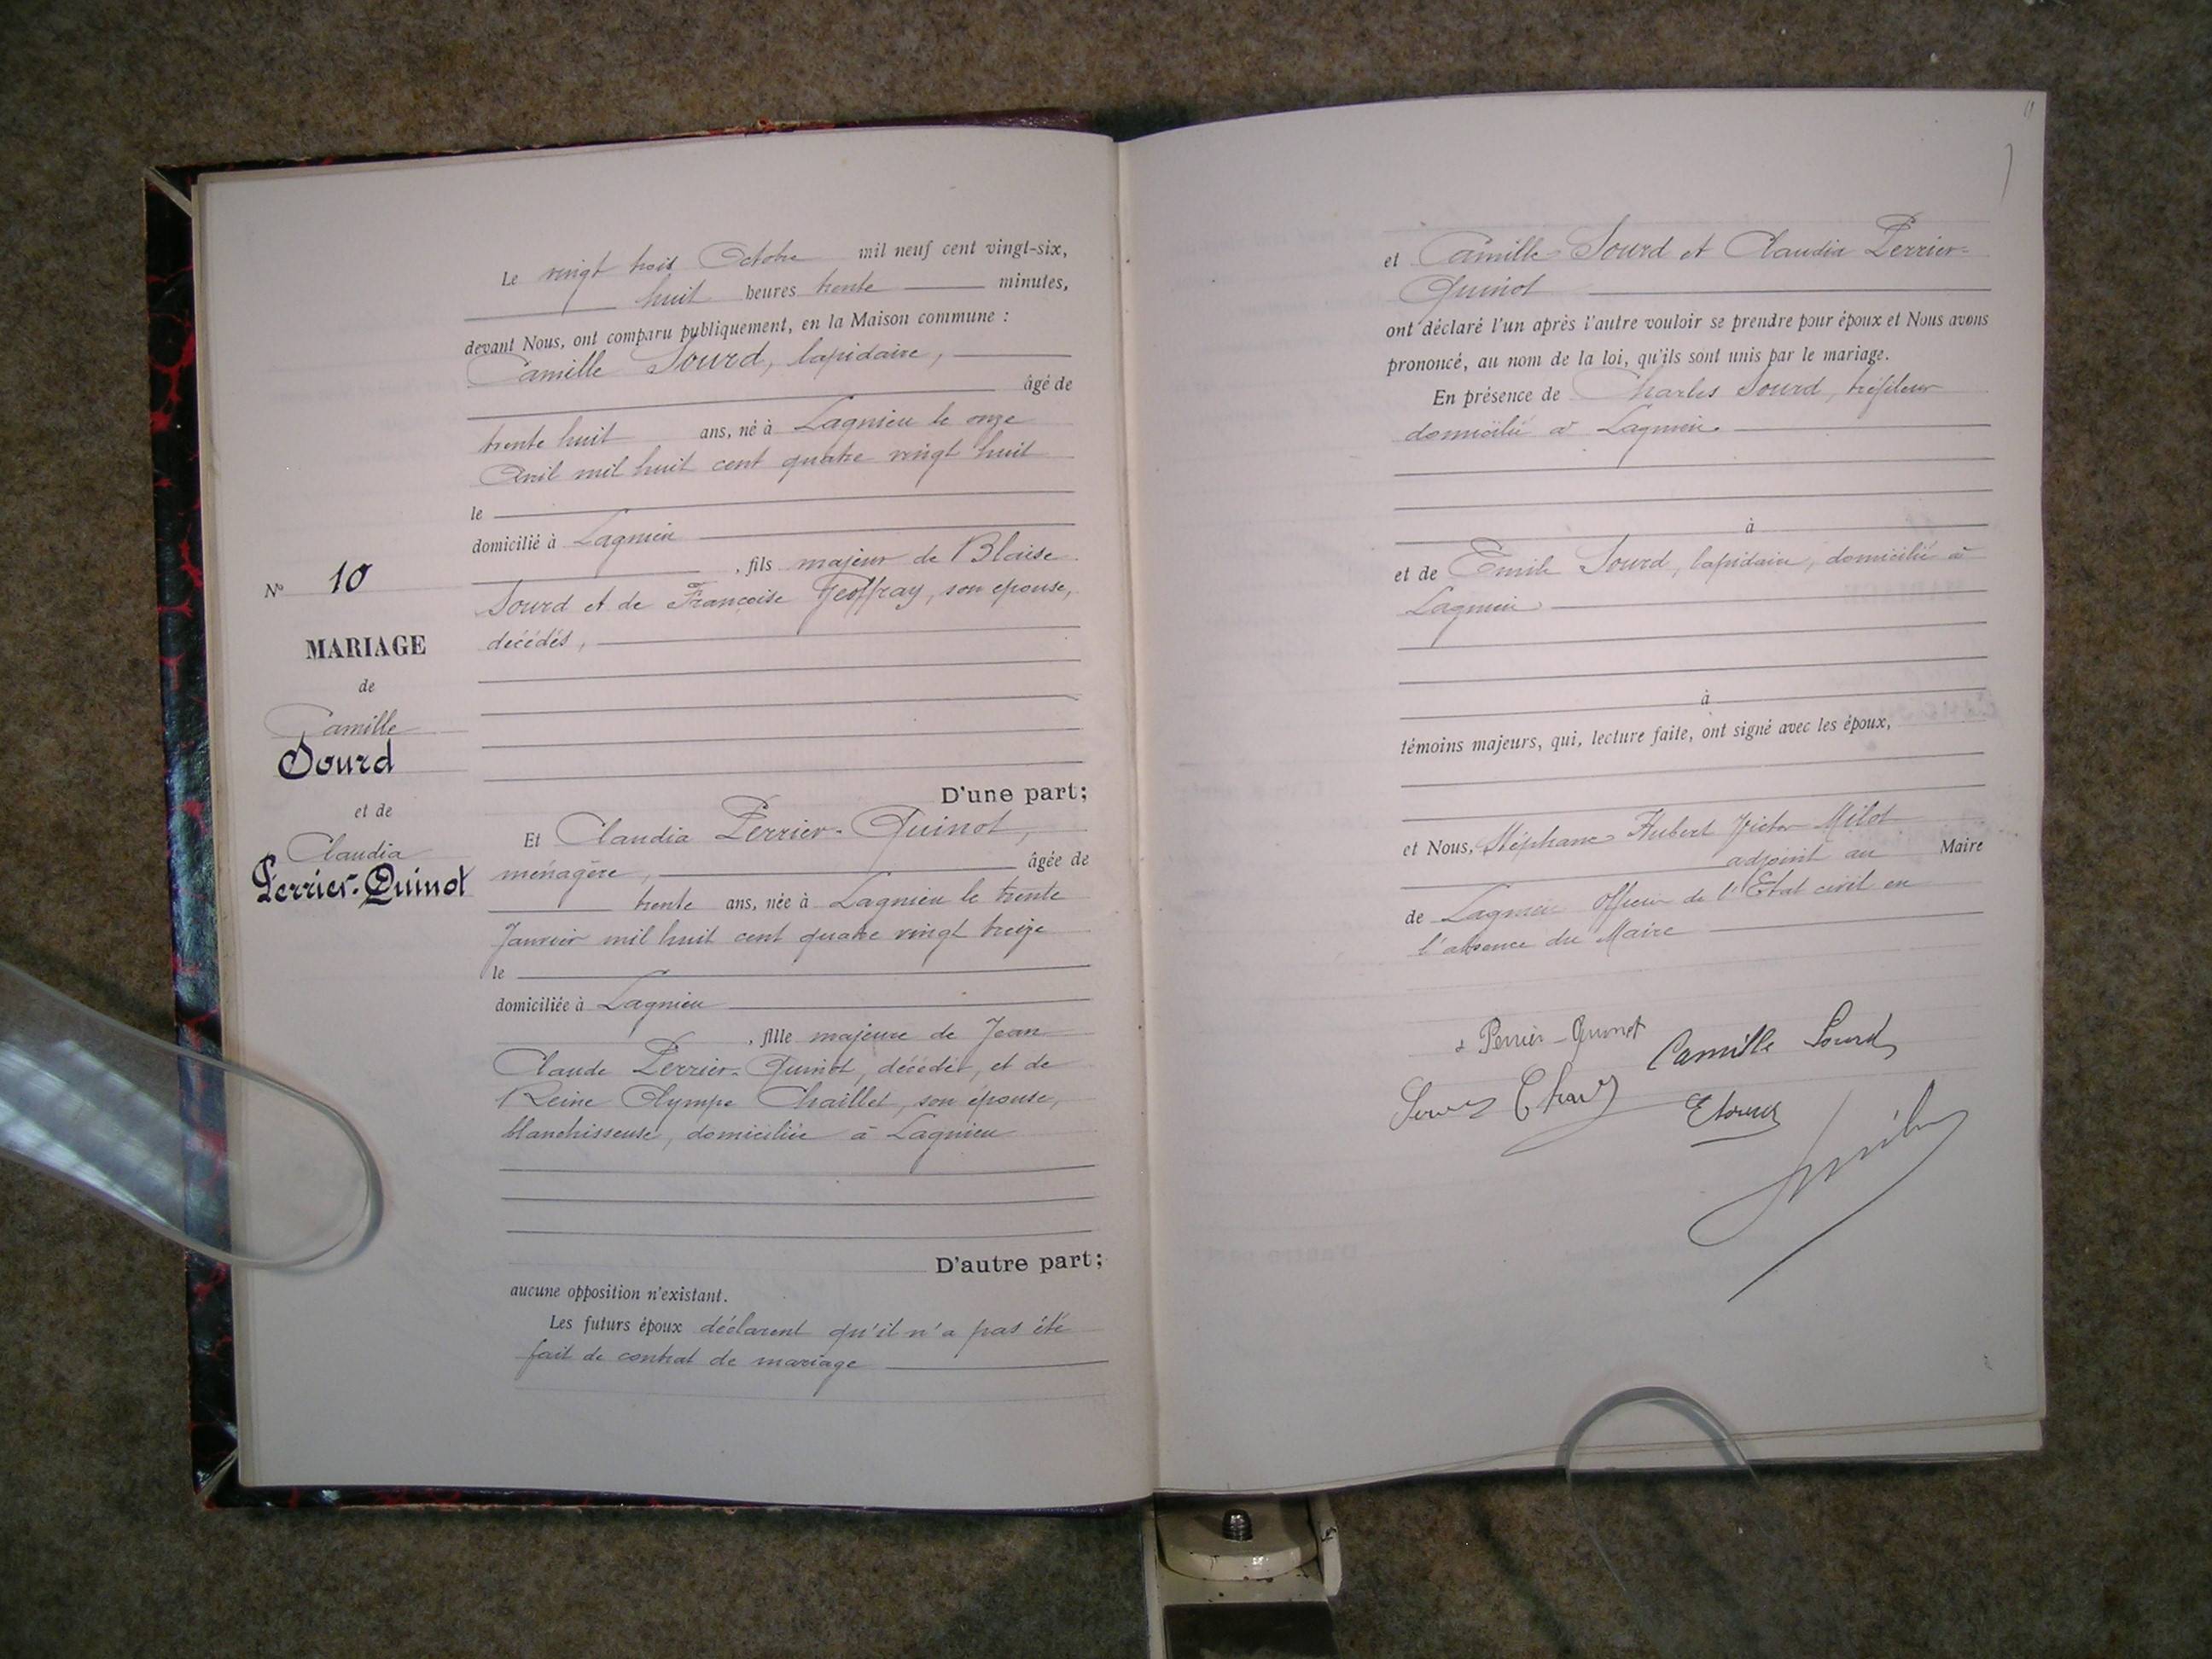 Le vingt trois Octobre mil neuf cent vingt-six,
huit heures trente minutes,
devant Nous, ont comparu publiquement, en la Maison commune :
Camille Sourd, lapidaire,
âgé de
trente huit ans, né à Lagnieu le onze
Avril mil huit cent quatre vingt huit
le
domicilié à Lagnieu
, fils majeur de Blaise
Sourd et de Françoise Geoffray, son épouse,
décédés,
D'une part;
Et Claudia Perrier-Quinot,
ménagère, âgée de
trente ans, née à Lagnieu le trente
Janvier mil huit cent quatre vingt treize
le
domiciliée à Lagnieu
, fille majeure de Jean
Claude Perrier-Quinot, décédé, et de
Reine Olympe Chaillet, son épouse,
blanchisseuse, domiciliée à Lagnieu
D'autre part;
aucune opposition n'existant.
Les futurs époux déclarent qu'il n'a pas été
fait de contrat de mariage
N° 10
MARIAGE
de
Camille
Sourd
et de
Claudia
Perrier-Quinot
et Camille Sourd et Claudia Perrier-
Quinot
ont déclaré l'un après l'autre vouloir se prendre pour époux et Nous avons
prononcé, au nom de la loi, qu'ils sont unis par le mariage.
En présence de Charles Sourd, tréfileur
domicilié à Lagnieu
à
et de Emile Sourd, lapidaire, domicilié à
Lagnieu
à
témoins majeurs, qui, lecture faite, ont signé avec les époux,
et Nous, Stéphane Hubert Victor Milot
adjoint au Maire
de Lagnieu Officier de l'Etat civil en
l'absence du Maire
Perrier-Quinot
Camille Sourd